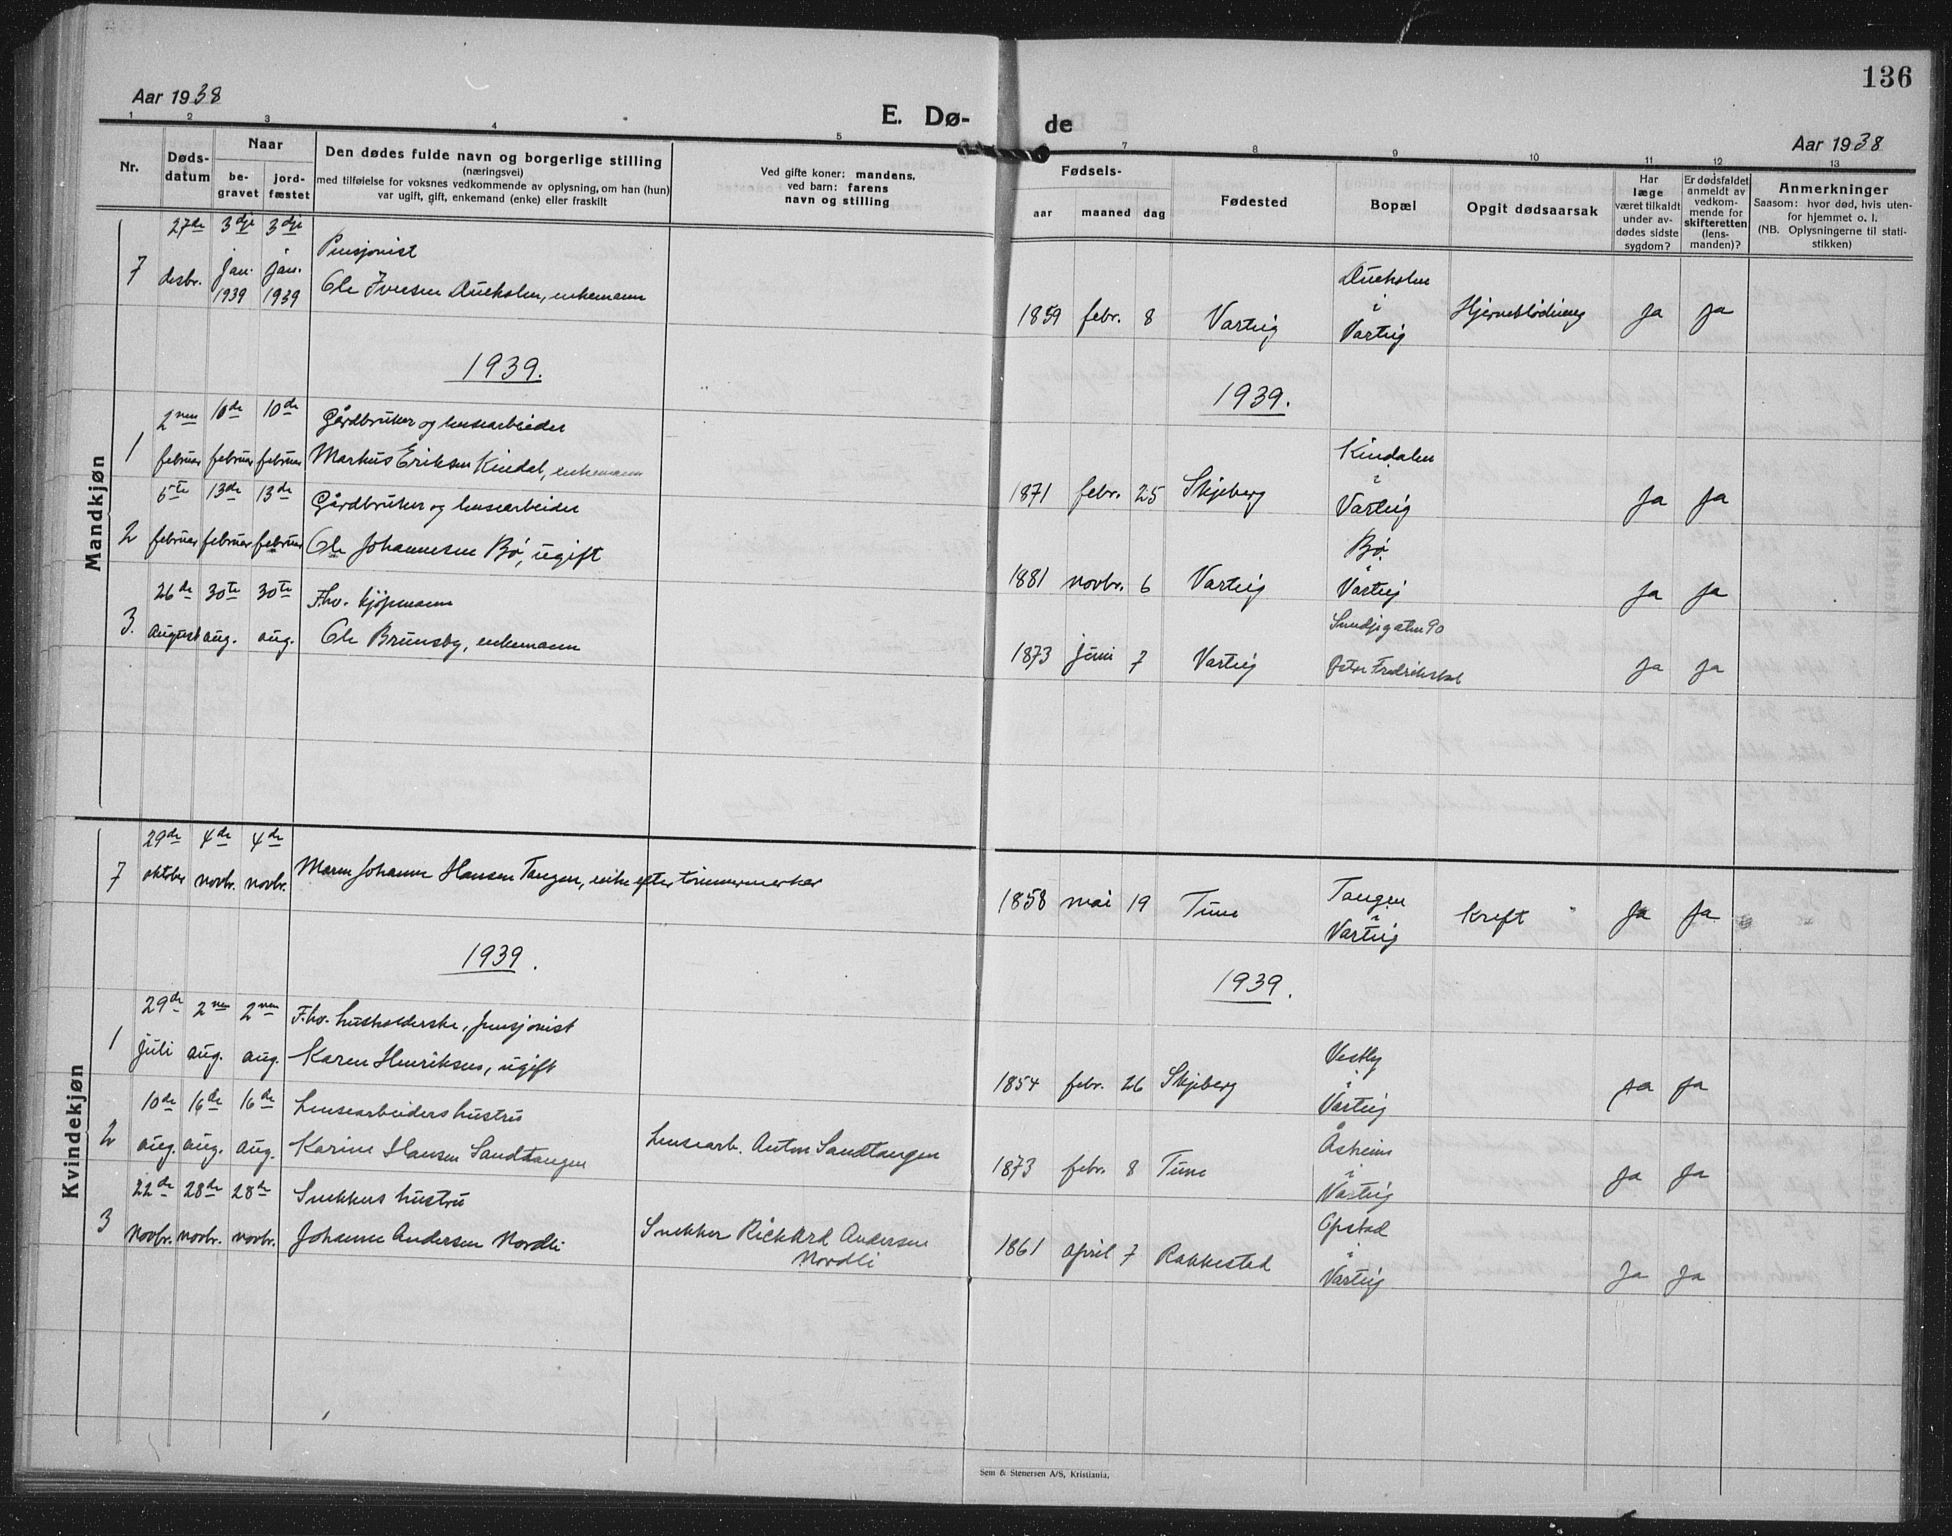 136
Aar 1938
E. Dø-
de
Aar 1938
1
2
3
4
5
7
8
9
10
11
12
13
Nr.
Døds-
datum
Naar
be-
gravet
jord-
fæstet
Den dødes fulde navn og borgerlige stilling
(næringsvei)
med tilføielse for voksnes vedkommende av oplysning, om han (hun)
var ugift, gift, enkemand (enke) eller fraskilt
Ved gifte koner: mandens,
ved barn: farens
navn og stilling
Fødsels-
aar
maaned
dag
Fødested
Bopæl
Opgit dødsaarsak
Har
læge
været tilkaldt
under av-
dødes sidste
sygdom?
Er dødsfaldet
anmeldt av
vedkom-
mende for
skifteretten
(lens-
manden)?
Anmerkninger
Saasom: hvor død, hvis uten-
for hjemmet o. l.
(NB. Oplysningerne til stati-
stikken)
Mandkjøn
7
27de
desbr.
3dje
jan.
1939
3dje
jan.
1939
Pensjonist
Ole Iversen Dueholm, enkemann
1859 febr. 8 Varteig
Dueholm
i
Varteig
Hjerneblødning
Ja
Ja
1939.
1939.
1
2nen
februar
10de
februar
10de
februar
Gårdbruker og lensearbeider
Markus Eriksen Kindal, enkemann
1871 febr. 25 Skjeberg
Kindalen
i
Varteig
Ja
Ja
2
5te
februar
13de
februar
13de
februar
Gårdbruker og lensearbeider
Ole Johannesen Bø, ugift
1881 novbr. 6 Varteig
Bø
i
Varteig
Ja
Ja
3.
26de
August
30te
aug.
30te
aug.
F.hv. kjøpmann
Ole Brunsby, enkemann
1873 juni 7 Varteig
90
Ja
Ja
Kvindekjøn
7
29de
oktober
4de
novbr.
4de
novbr.
Maren Johanne Hansen Tangen, enke efter tømmermerker
1858 mai 19 Tune
Tangen
i
Varteig
Kreft
Ja
Ja
1939.
1939.
1
29de
juli
2nen
aug.
2nen
aug.
F.hv. husholderske, pensjonist
Karen Henriksen, ugift
1854 febr. 26 Skjeberg
Vestby
i
Varteig
Ja
Ja
2
10de
aug.
16de
aug.
16de
aug.
Lensearbeiders hustru
Karine Hansen Sandtangen
Lensearb. Anton Sandtangen
1873 febr. 8 Tune
Åsheim
i
Varteig
Ja
Ja
3
22de
Novbr.
28de
novbr.
28de
novbr.
Snekkers hustru
Johanne Andersen Nordli
Snekker Rickard Andersen
Nordli
1861 april 7 Rakkestad
Opstad
i
Varteig
Ja
Ja
Sem & Stenersen A/S, Kristiania.